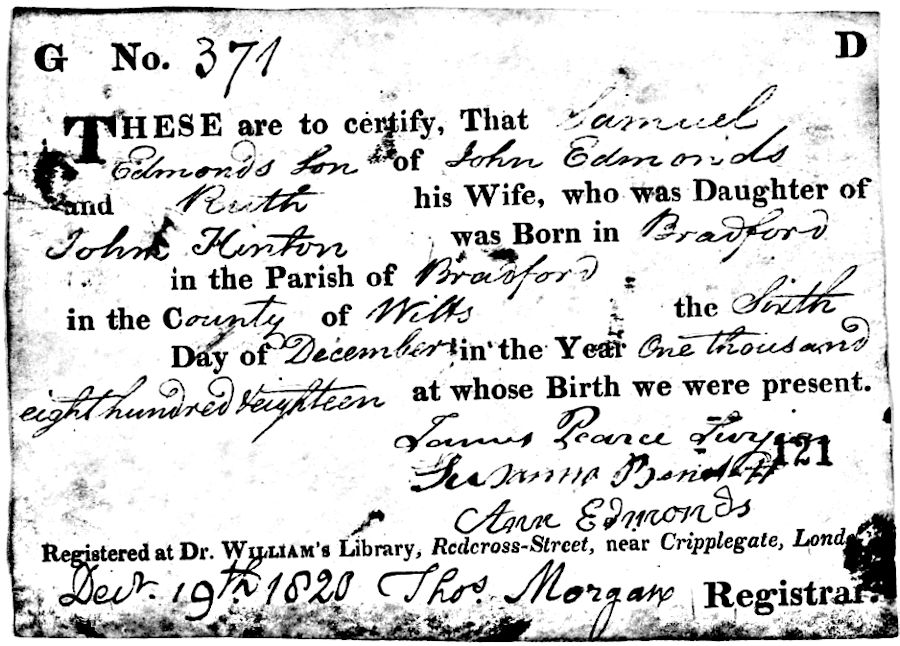 G No. 371 D
THESE are to certify, That Samuel
Edmonds Son of John Edmonds
and Ruth his Wife, who was Daughter of
John Hinton was Born in Bradford
in the Parish of Bradford
in the County of Wilts the Sixth
Day of December in the Year One thousand
eight hundred & eighteen at whose Birth we were present.
James Pearce Surgeon
Susanna Bennett 121
Ann Edmonds
Registered at Dr. WILLIAM's Library, Redcross-Street, near Cripplegate,
Decr. 19th 1820 Thos. Morgan Registrar.